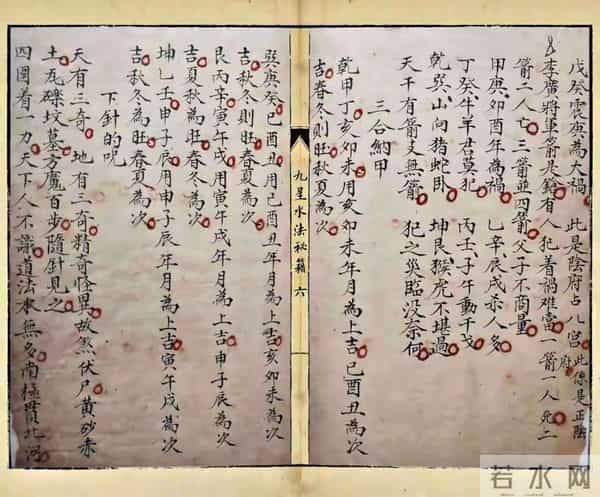 戊癸震庚為大禍 此是陰府占八宮 此係是正陰府
李廣將軍箭是鎗 有人犯着禍難當 一箭一人死二
箭二人亡 三箭並四箭 父子不商量
甲庚卯酉年為禍 乙辛辰戌杀人多
丁癸牛羊君莫犯 丙壬子午動干戈
乾巽山向猪蛇卧 坤艮猴虎不堪過
天干有箭支無箭 犯之災臨没奈何
三合納甲
乾甲丁亥卯未用亥卯未年月為上吉已酉丑為次
吉春冬則旺秋夏為次
九星水法秘籍 六
巽庚癸已酉丑用已酉丑年月為上吉亥卯未為次
吉秋冬則旺春夏為次
艮丙辛寅午戌用寅午戌年月為上吉申子辰為次
吉夏秋為旺春冬為次
坤乙壬申子辰用申子辰年月為上吉寅午戌為次
吉秋冬為旺春夏為次
下針的呪
天有三奇 地有三奇精奇怪異故煞伏尸黄砂赤
土瓦礫坟墓方魔百步隨針見之
四圓着一力天下人不識道法本無多南極貫北河
若水网